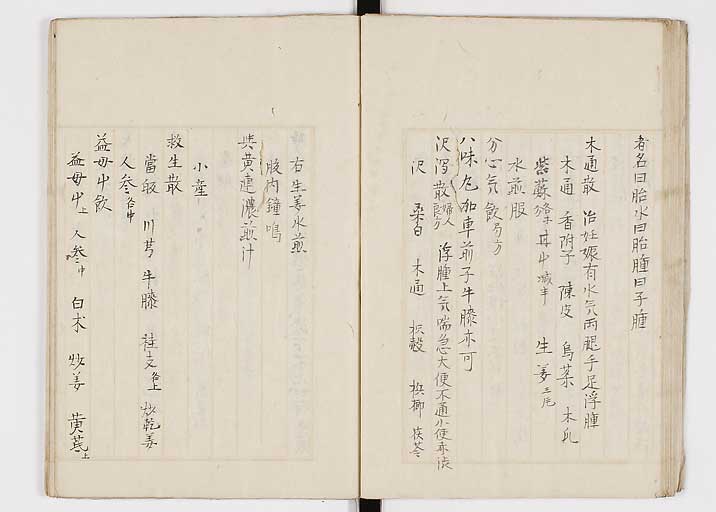 者名曰胎水曰胎腫曰子腫
木通散 治妊娠有水気両腿手足浮腫
木通 香附子 陳皮 烏薬 木瓜
紫蘇 甘中減半 生姜三片
水煎服
分心気飲局方
八味丸加車前子牛膝亦可
沢瀉散婦人良方 浮腫上気喘急大便不通小便赤渋
沢 桑白 木通 枳殻 檳榔 茯苓
右生姜水煎
腹内鐘鳴
與黄連濃煎汁
小産
救生散
當皈 川芎 牛膝 桂支 炒乾姜
人参各中
益母中飲
益母中上 人参中 白朮 炒姜 黄芪上